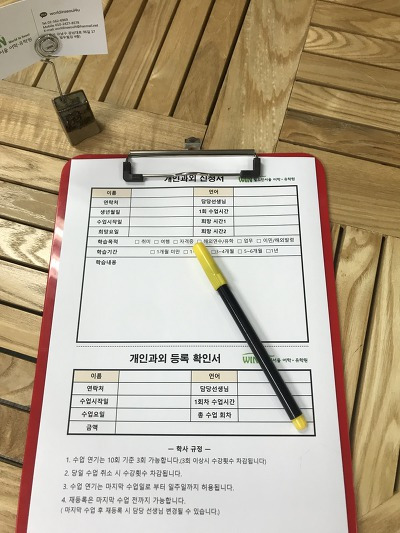 world3wasoul4u
개인과외 신청서
이름 언어
연락처 담당선생님
생년월일 1회 수업시간
수업시작일 희망 시간1
희망요일 희망 시간2
학습목적 □ 취미 □ 여행 □ 자격증 □ 해외연수/유학 □ 업무 □ 이민/해외발령
학습기간 □ 1개월 미만 □ □3~4개월 □ 5~6개월 □1년
학습내용
개인과외 등록 확인서 WIN 어학·유학원
이름 언어
연락처 담당선생님
수업시작일 1회차 수업시간
수업요일 총 수업 회차
금액
― 학사 규정 ―
1. 수업 연기는 10회 기준 3회 가능합니다.(3회 이상시 수강횟수 차감됩니다)
2. 당일 수업 취소 시 수강횟수 차감됩니다.
3. 수업 연기는 마지막 수업일로 부터 일주일까지 허용됩니다.
4. 재등록은 마지막 수업 전까지 가능합니다.
( 마지막 수업 후 재등록 시 담당 선생님 변경될 수 있습니다.)